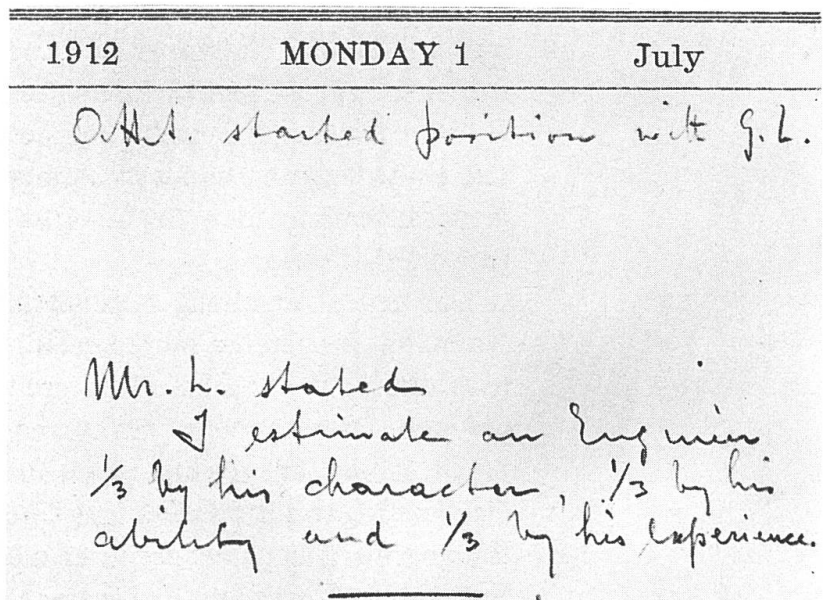 1912 MONDAY 1 July
O.H.A. started position with G.L.
Mr. L. stated
I estimate an Engineer
1/3 by his character, 1/3 by his
ability and 1/3 by his experience.